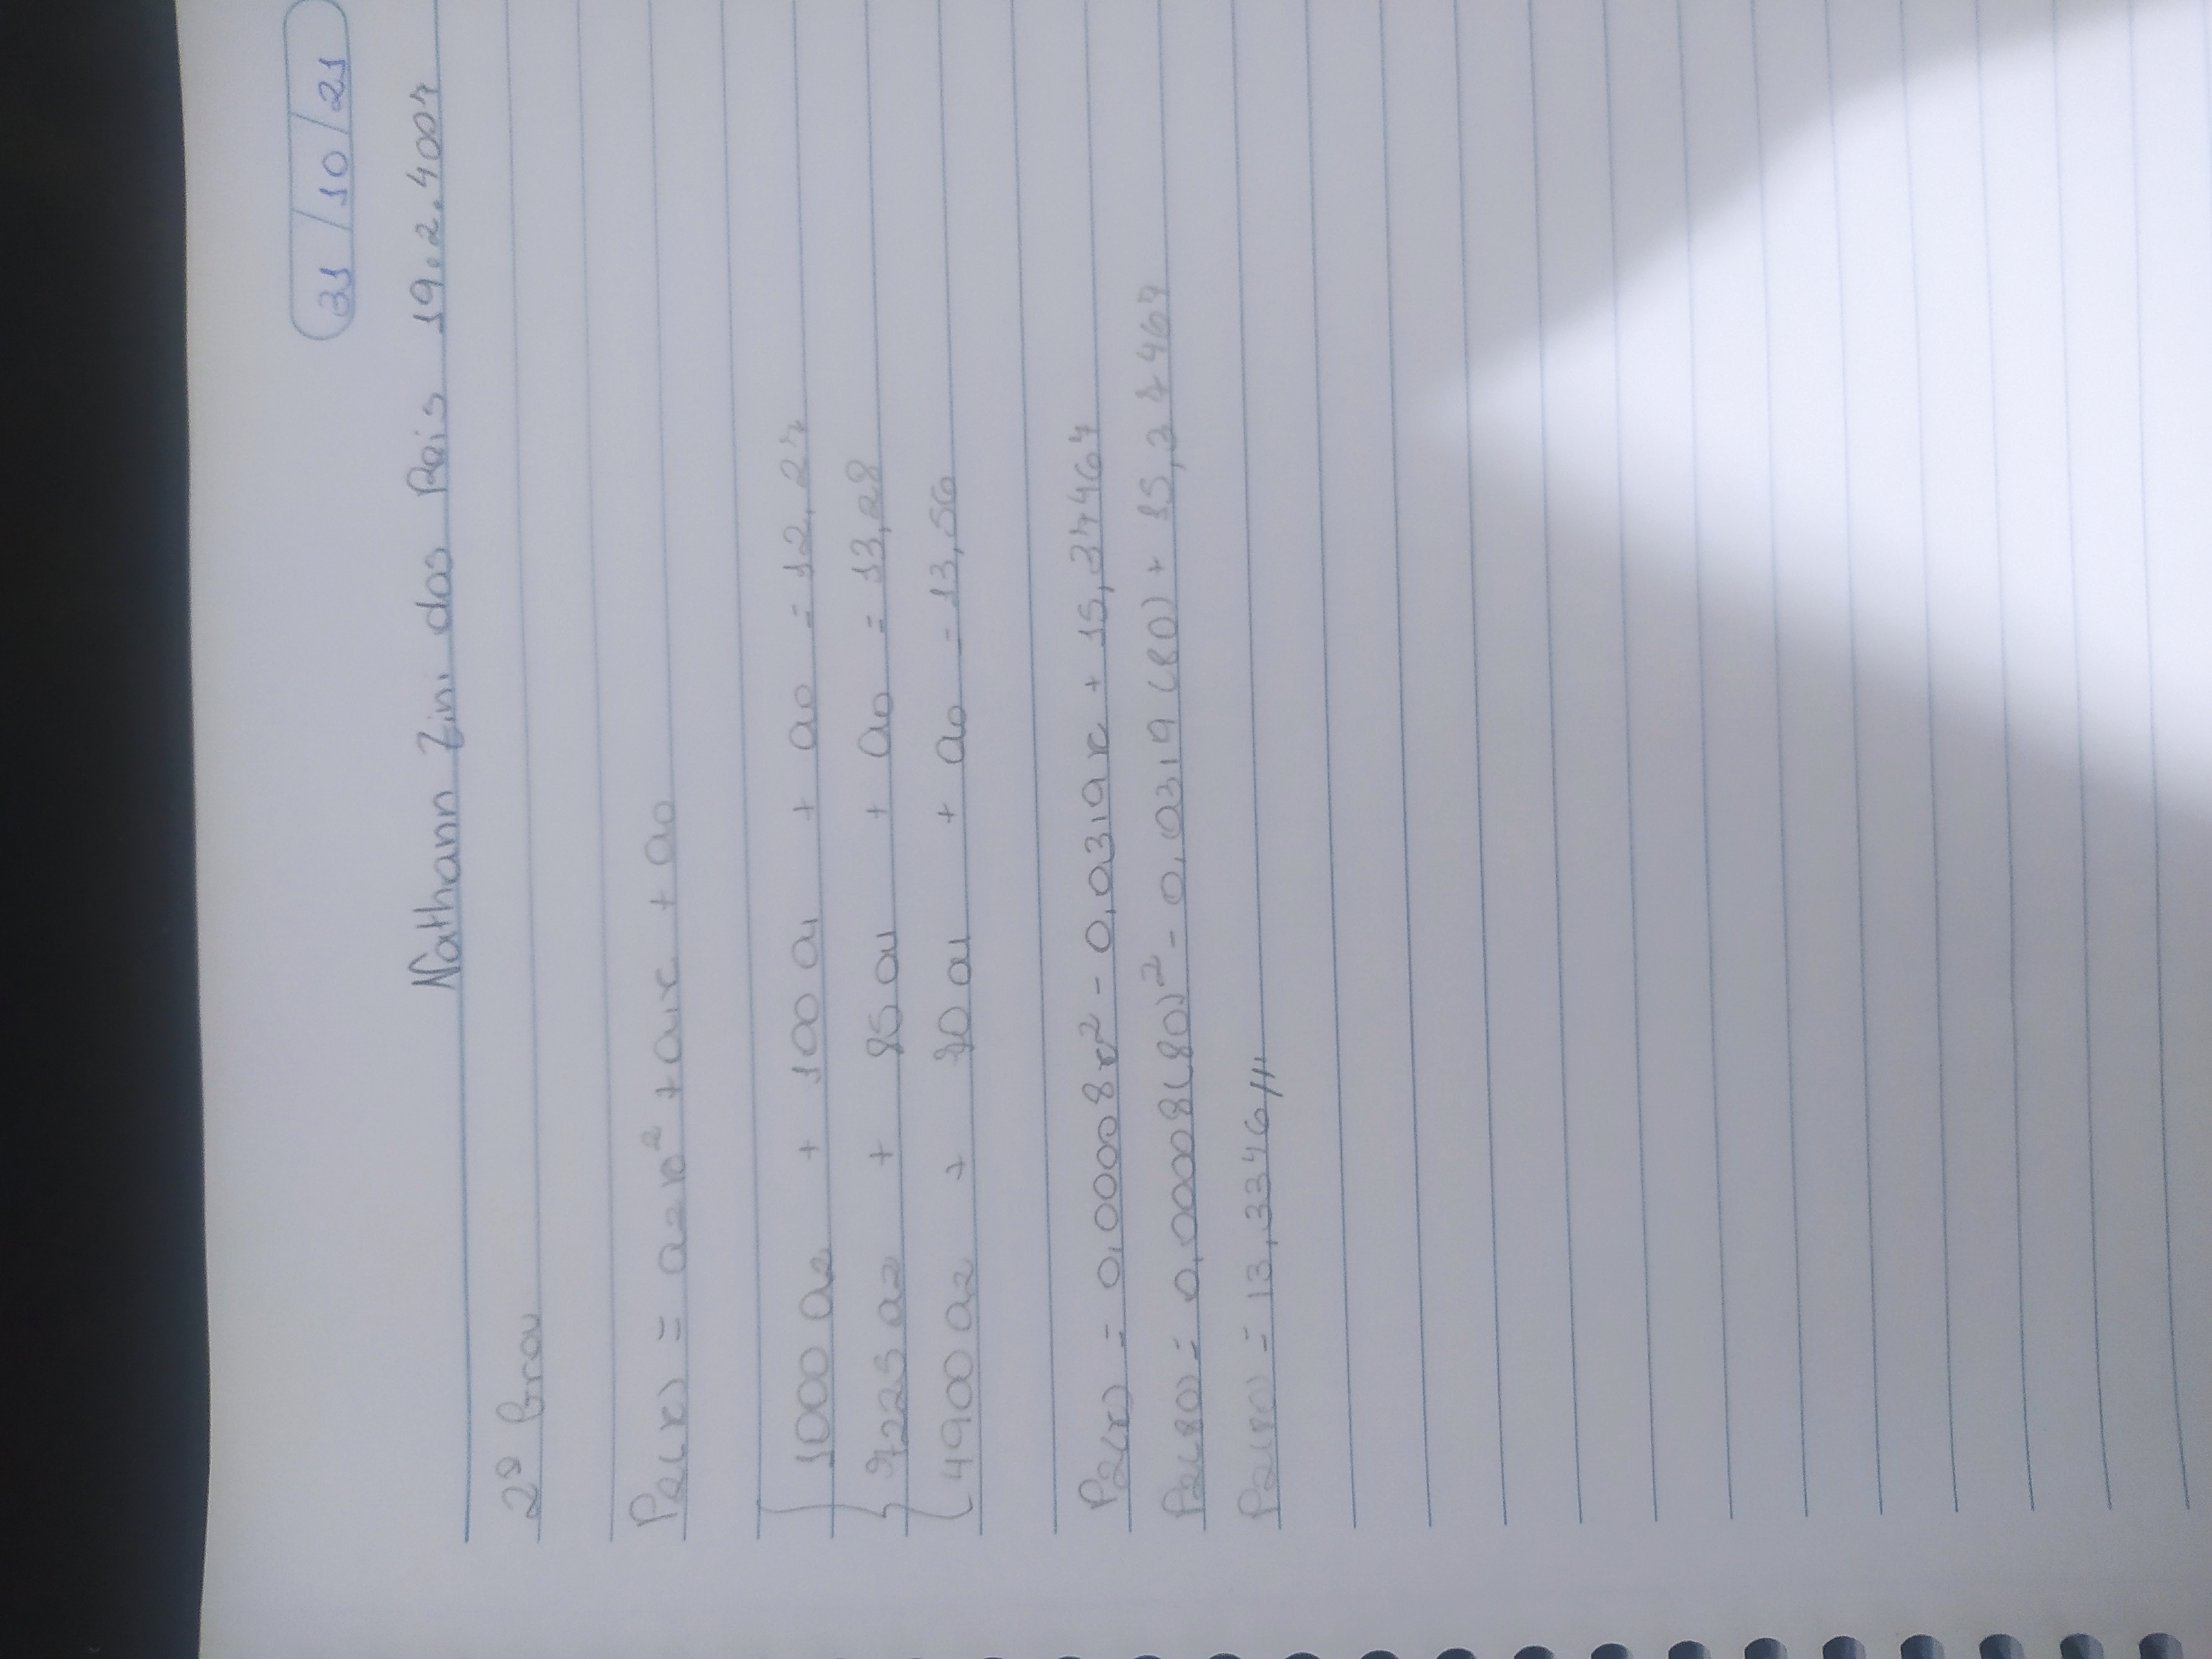 31/10/21
Nathann Zini dos Reis 19.2.4007
2º Grau
P2(x) = a2x² + a1x + a0
1000 a2 + 100 a1 + a0 = 12,27
7225 a2 + 85 a1 + a0 = 13,28
4900 a2 + 70 a1 + a0 = 13,56
P2(x) = 0,00008x² - 0,0319x + 15,37467
P2(80) = 0,00008(80)² - 0,0319(80) + 15,37467
P2(80) = 13,3346,,